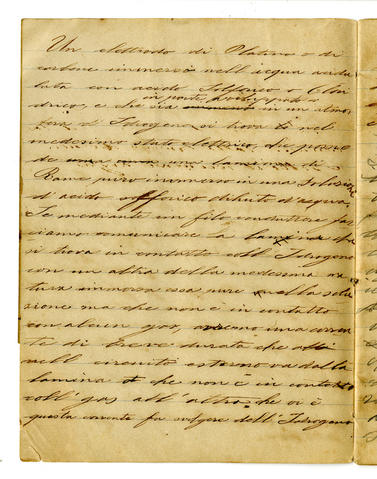 Un elettrodo di Platino o di
carbone immerso nell'acqua acidu
lata con acido Solforico o Clori
in parte
drico, e che sia in un atmo,
fera d'Idrogeno si trova nel
medesimo stato elettrico, che
de una lamina di
Rame puro immerso in una Soluzio
d'acido solforico diluto d'acqua,
Se mediante un filo conduttore fac
ciamo comunicare la lamina che
si trova in contatto coll'Idrogeno
con un altra della medesima na
tura immersa essa pure nella solu
zione ma che non è in contatto
con alcun gas, avremo una corren
te di breve durata che
nell circuito esterno va dalla
lamina che non è in contatto
coll'gas all'altra che vi è
questa corrente fa volgere dell'Idrogeno